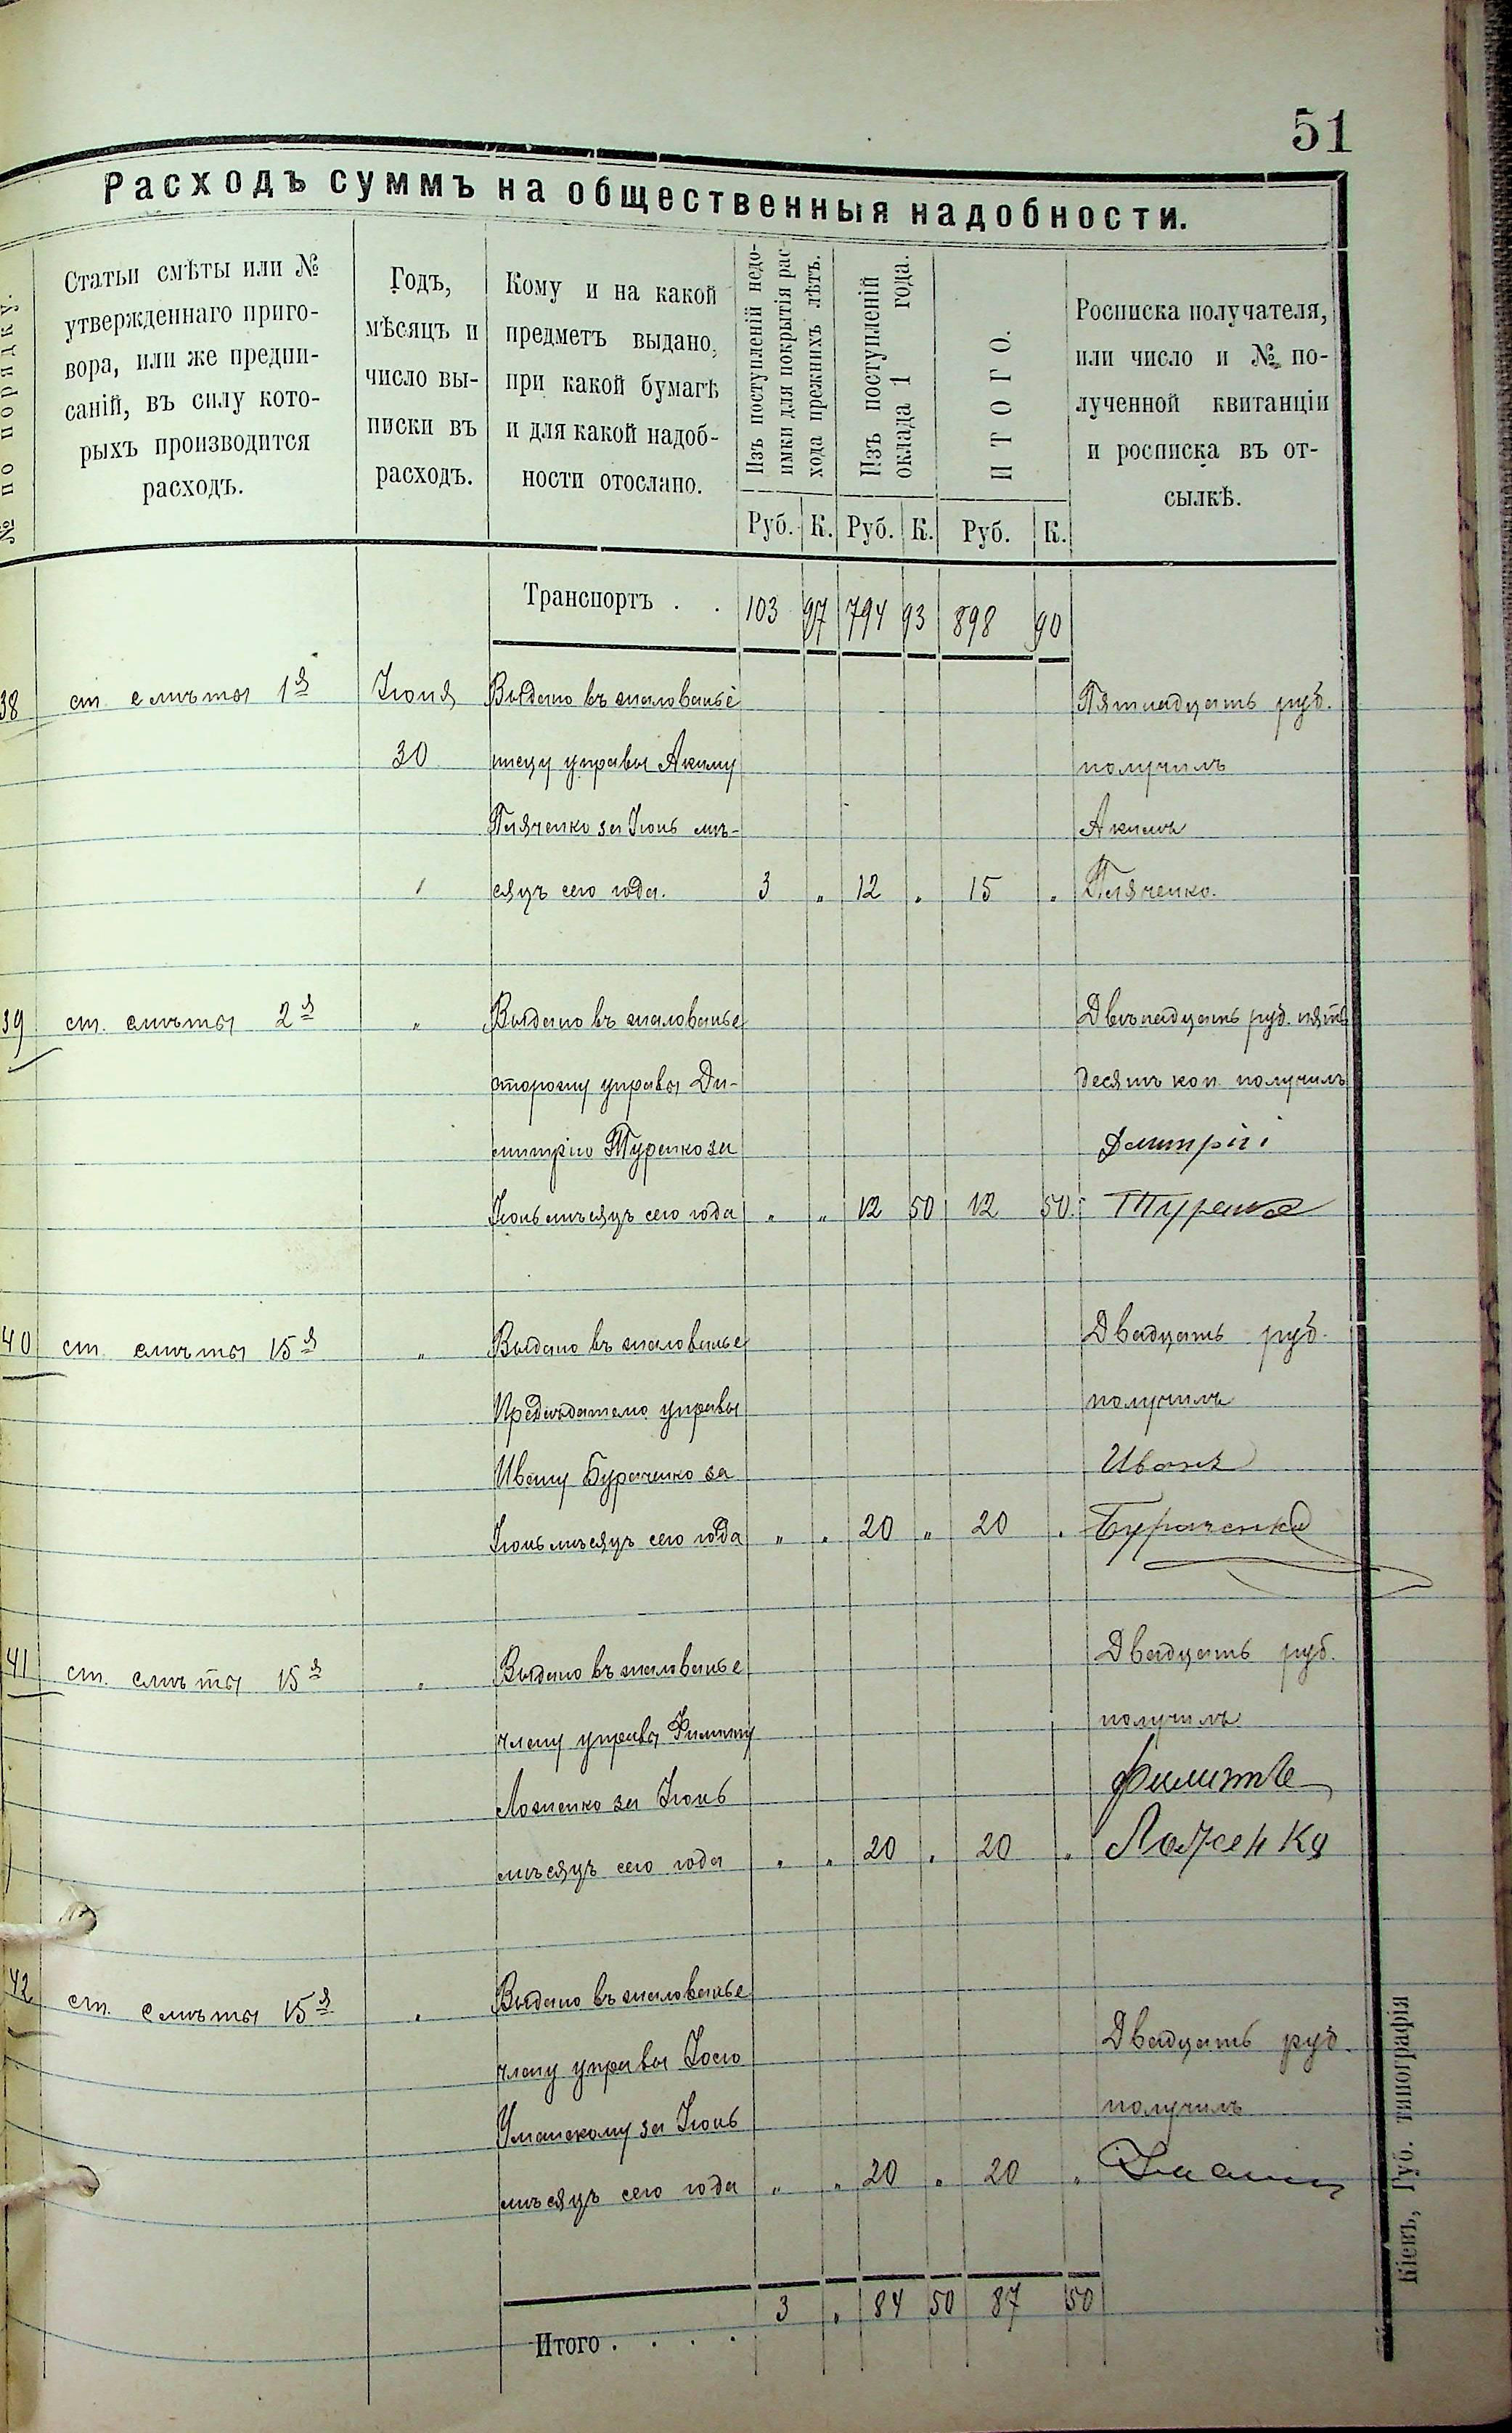 51
Расходъ суммъ на общественныя надобности.
№ по порядку.
Статьи смѣты или №
утвержденнаго приго-
вора, или же предпи-
саній, въ силу кото-
рыхъ производится
расходъ.
Годъ,
мѣсяцъ и
число вы-
писки въ
расходъ.
Кому и на какой
предметъ выдано,
при какой бумагѣ
и для какой надоб-
ности отослано.
Изъ поступленій недо-
имки для покрытія рас-
хода прежнихъ лѣтъ.
Изъ поступленій
оклада 1 года.
ИТОГО.
Росписка получателя,
или число и № по-
лученной квитанціи
и росписка въ от-
сылкѣ.
Руб. К. Руб. К. Руб. К.
Транспортъ . . 103 97 794 93 898 90
38 ст смѣты 1я Іюня Выдано въ жалованье Пятнадцать руб.
30 писцу управы Акиму получилъ
за Іюнь мѣ- Акимъ
сяцъ сего года. 3 „ 12 „ 15 „
39 ст. смѣты 2я „ Выдано въ жалованье Двѣнадцать руб. пять
сторожу управы Ди- десятъ коп получилъ
митрію Туренко за Дмитрій
Іюнь мѣсяцъ сего года „ „ 12 50 12 50 Туренко
40 ст смѣты 15я „ Выдано въ жалованье Двадцать руб.
Предсѣдателю управы получилъ
Ивану Бураченко за Иванъ
Іюнь мѣсяцъ сего года „ „ 20 „ 20 „ Бураченко
41 ст. смѣты 15я „ Выдано въ жалованье Двадцать руб.
члену управы Филиппу получилъ
Ложенко за Іюнь Филиппъ
мѣсяцъ сего года „ „ 20 „ 20 „ Ложенко
42 ст. смѣты 15я „ Выдано въ жалованье
члену управы Двадцать руб.
Уманскому за Іюнь получилъ
мѣсяцъ сего года „ „ 20 „ 20 „
Итого . . . . 3 „ 84 50 87 50
Кіевъ, Губ. типографія